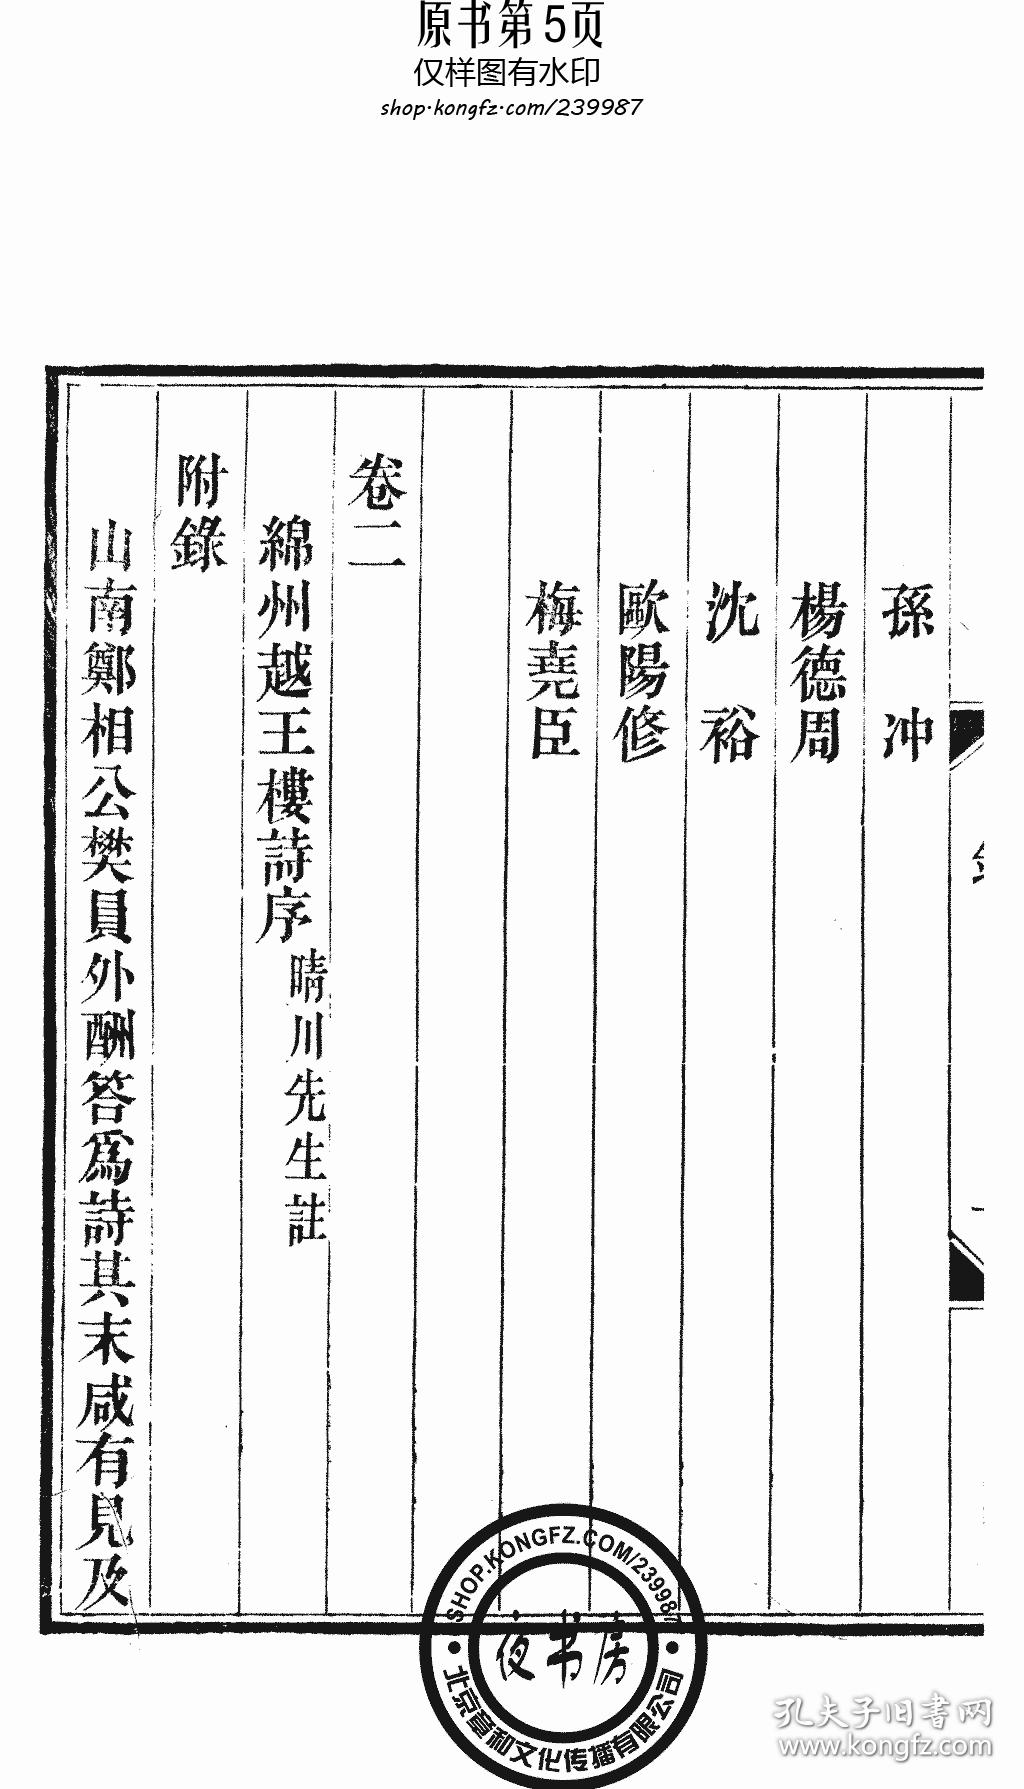 原书第5页
仅样图有水印
shop·kongfz.com/239987
孫 冲
楊德周
沈 裕
歐陽修
梅堯臣
卷二
綿州越王樓詩序 晴川先生註
附錄
山南鄭相公樊員外酬答爲詩其末咸有見及
SHOP.KONGFZ.COM/239987
夜书房
北京章和文化传播有限公司
孔夫子旧书网
www.kongfz.com